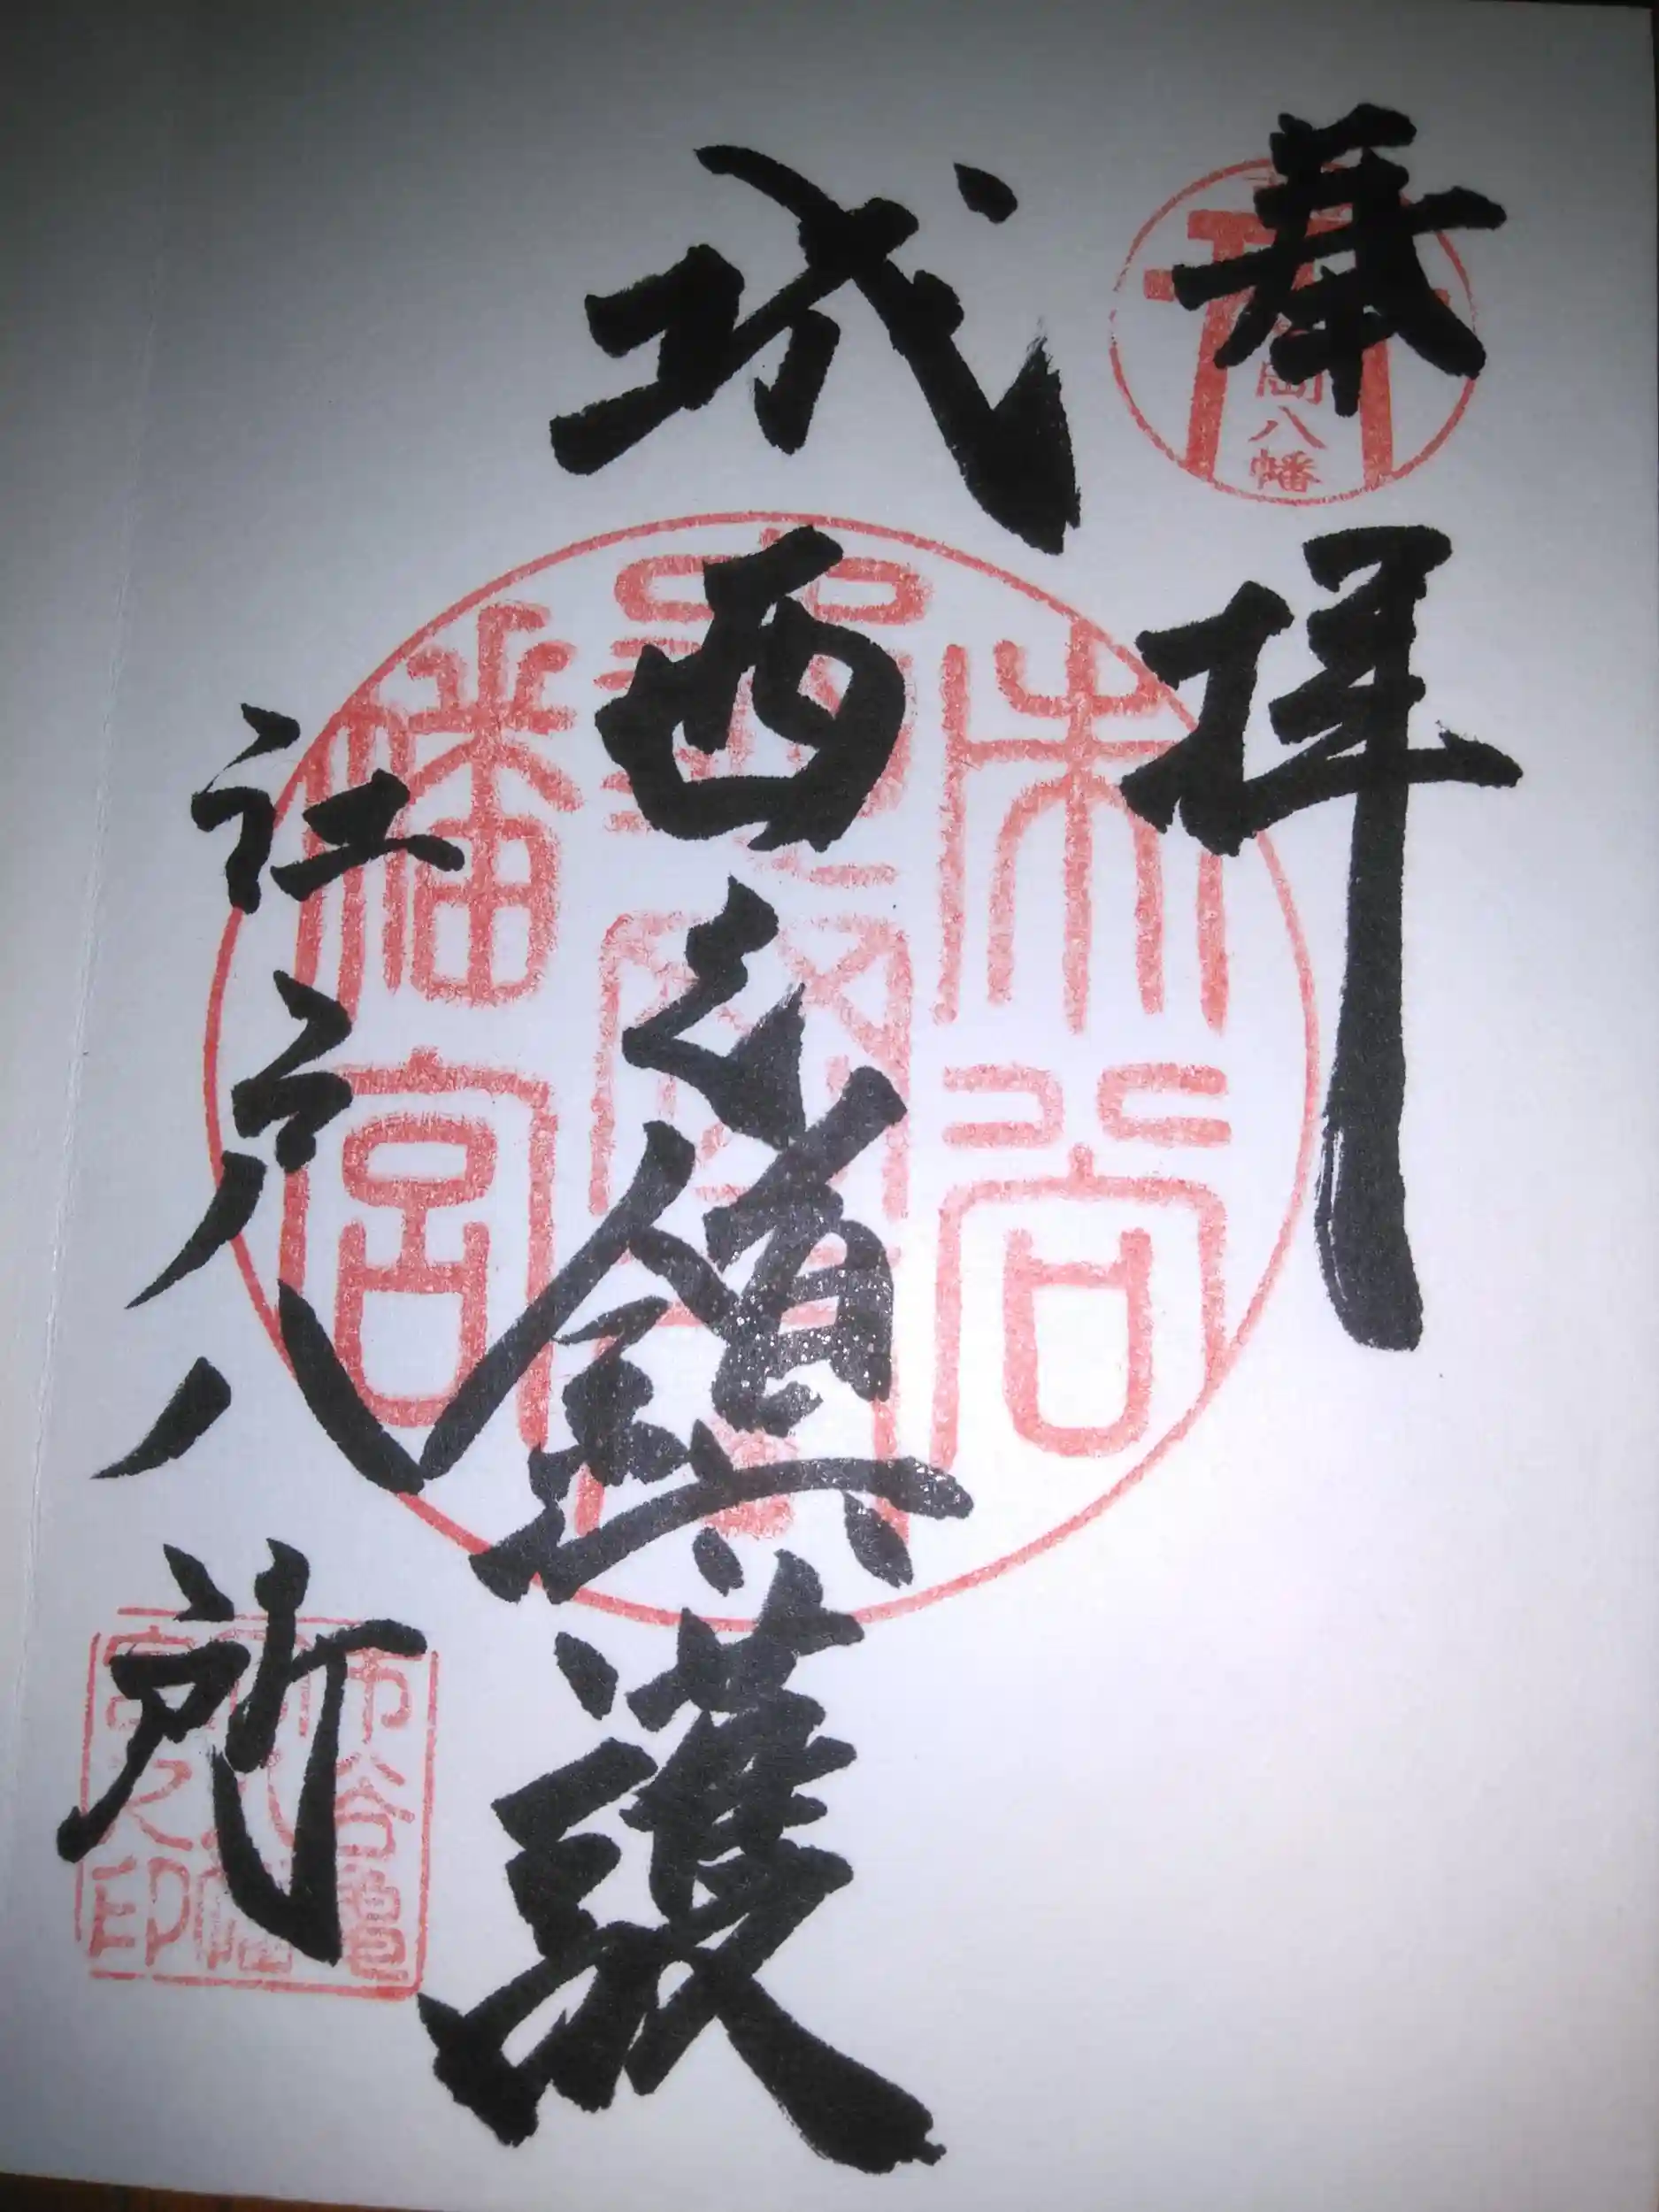 奉拝
岡八幡
城西之鎮護
幡宮
江戸八所
市谷亀
八幡
宮之印